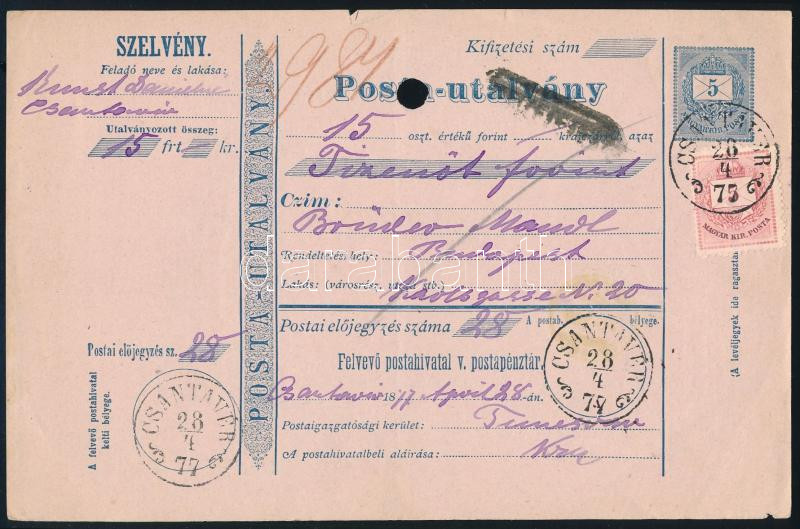 SZELVÉNY.
Feladó neve és lakása:
Kunst
Csantavir
Utalványozott összeg:
15 frt kr.
Postai előjegyzés sz. 28
A felvevő postahivatal kelti bélyege.
CSANTAVÉR
28
4
77
POSTA-UTALVÁNY.
984
Kifizetési szám
Posta-utalvány
15 oszt. értékű forint krajczárról, azaz
Tizenöt forint
Czim:
Brüder Mandl
Rendeltetési hely: Budapest
Lakás: (városrész, utcza stb.) Karlsgasse N. 20
Postai előjegyzés száma 28 A postah. bélyege.
Felvevő postahivatal v. postapénztár.
1877 April 28-án.
Postaigazgatósági kerület:
A postahivatalbeli aláírása:
CSANTAVÉR
28
4
77
5
MAGYAR KIR. POSTA
CSANTAVÉR
28
4
75
MAGYAR KIR. POSTA
(A levéljegyek ide
darabanth